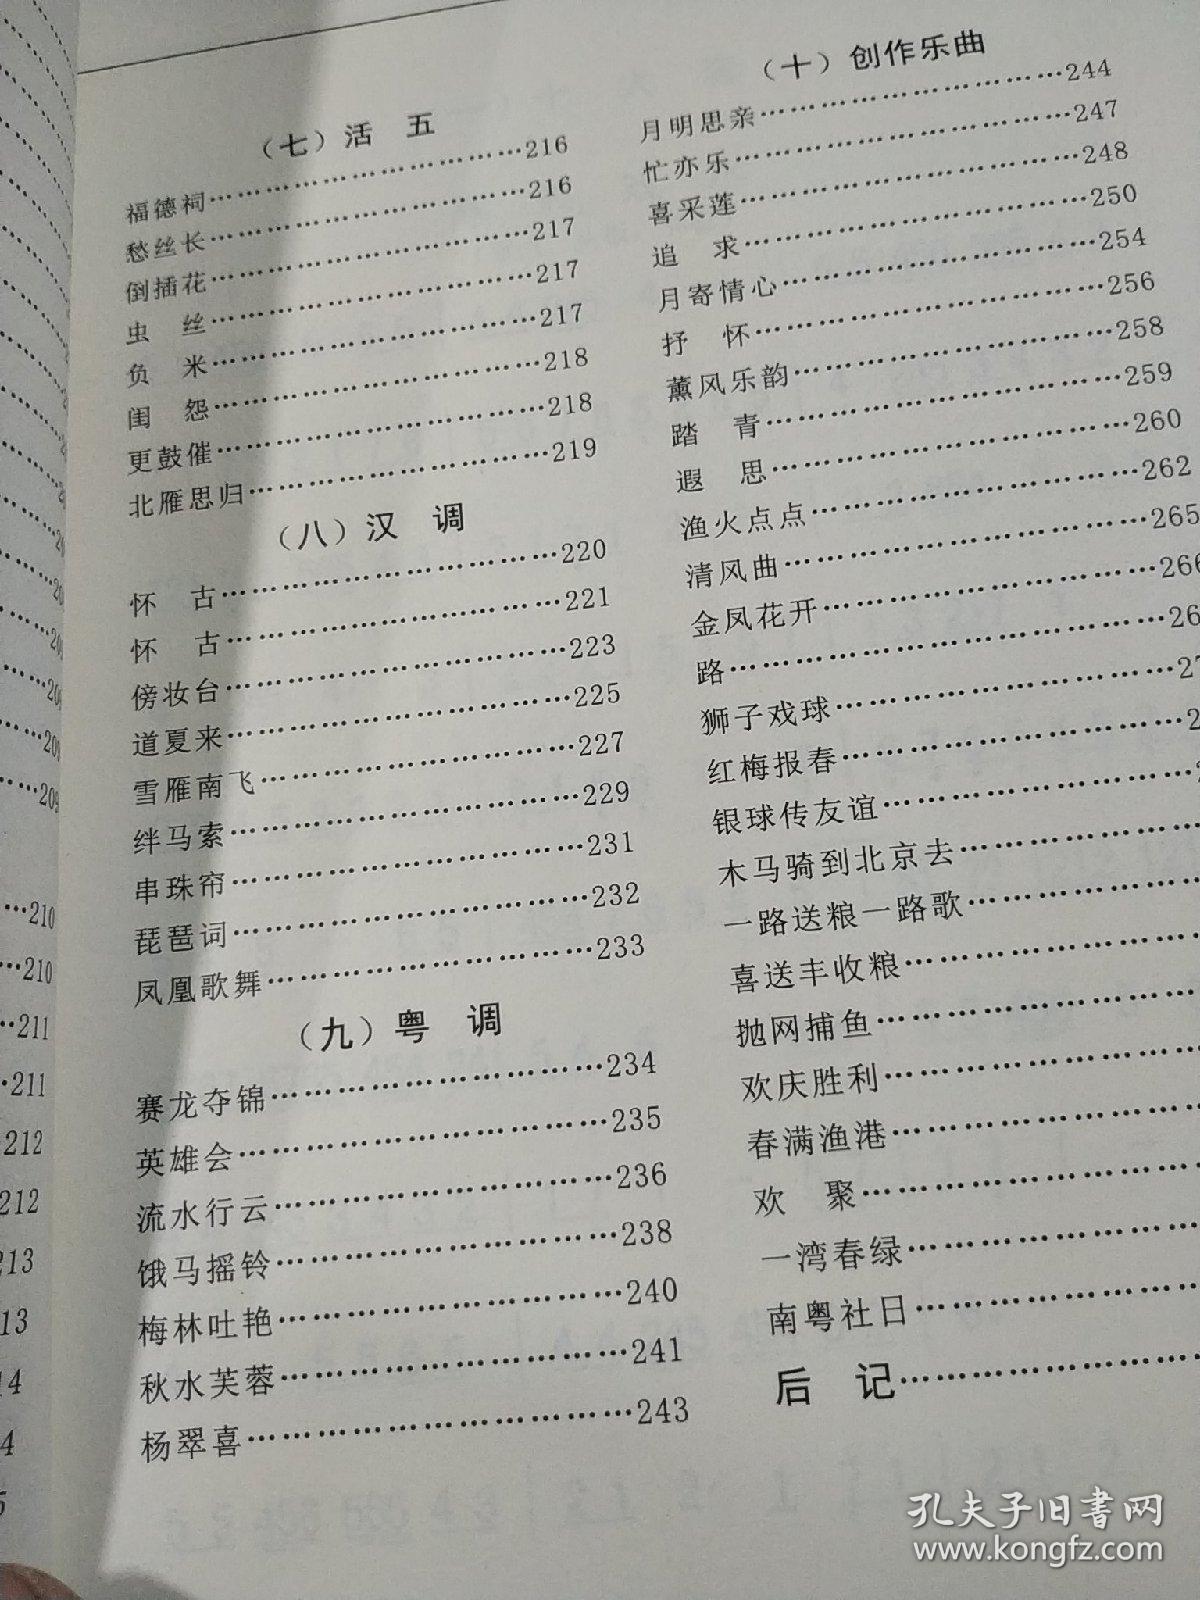 （七）活　五
福德祠……………………………216
愁丝长……………………………216
倒插花……………………………217
虫　丝……………………………217
负　米……………………………217
闺　怨……………………………218
更鼓催……………………………218
北雁思归…………………………219
（八）汉　调
怀　古……………………………220
怀　古……………………………221
傍妆台……………………………223
道夏来……………………………225
雪雁南飞…………………………227
绊马索……………………………229
串珠帘……………………………231
琵琶词……………………………232
凤凰歌舞…………………………233
（九）粤　调
赛龙夺锦…………………………234
英雄会……………………………235
流水行云…………………………236
饿马摇铃…………………………238
梅林吐艳…………………………240
秋水芙蓉…………………………241
杨翠喜……………………………243
（十）创作乐曲
月明思亲…………………………244
忙亦乐……………………………247
喜采莲……………………………248
追　求……………………………250
月寄情心…………………………254
抒　怀……………………………256
薰风乐韵…………………………258
踏　青……………………………259
遐　思……………………………260
渔火点点…………………………262
清风曲……………………………265
金凤花开…………………………266
路…………………………………26
狮子戏球…………………………27
红梅报春…………………………2
银球传友谊………………………2
木马骑到北京去…………………
一路送粮一路歌…………………
喜送丰收粮………………………
抛网捕鱼…………………………
欢庆胜利…………………………
春满渔港…………………………
欢　聚……………………………
一湾春绿…………………………
南粤社日…………………………
后　记……………………………
…209
…210
…210
…211
…211
212
212
213
13
14
4
5
孔夫子旧书网
www.kongfz.com